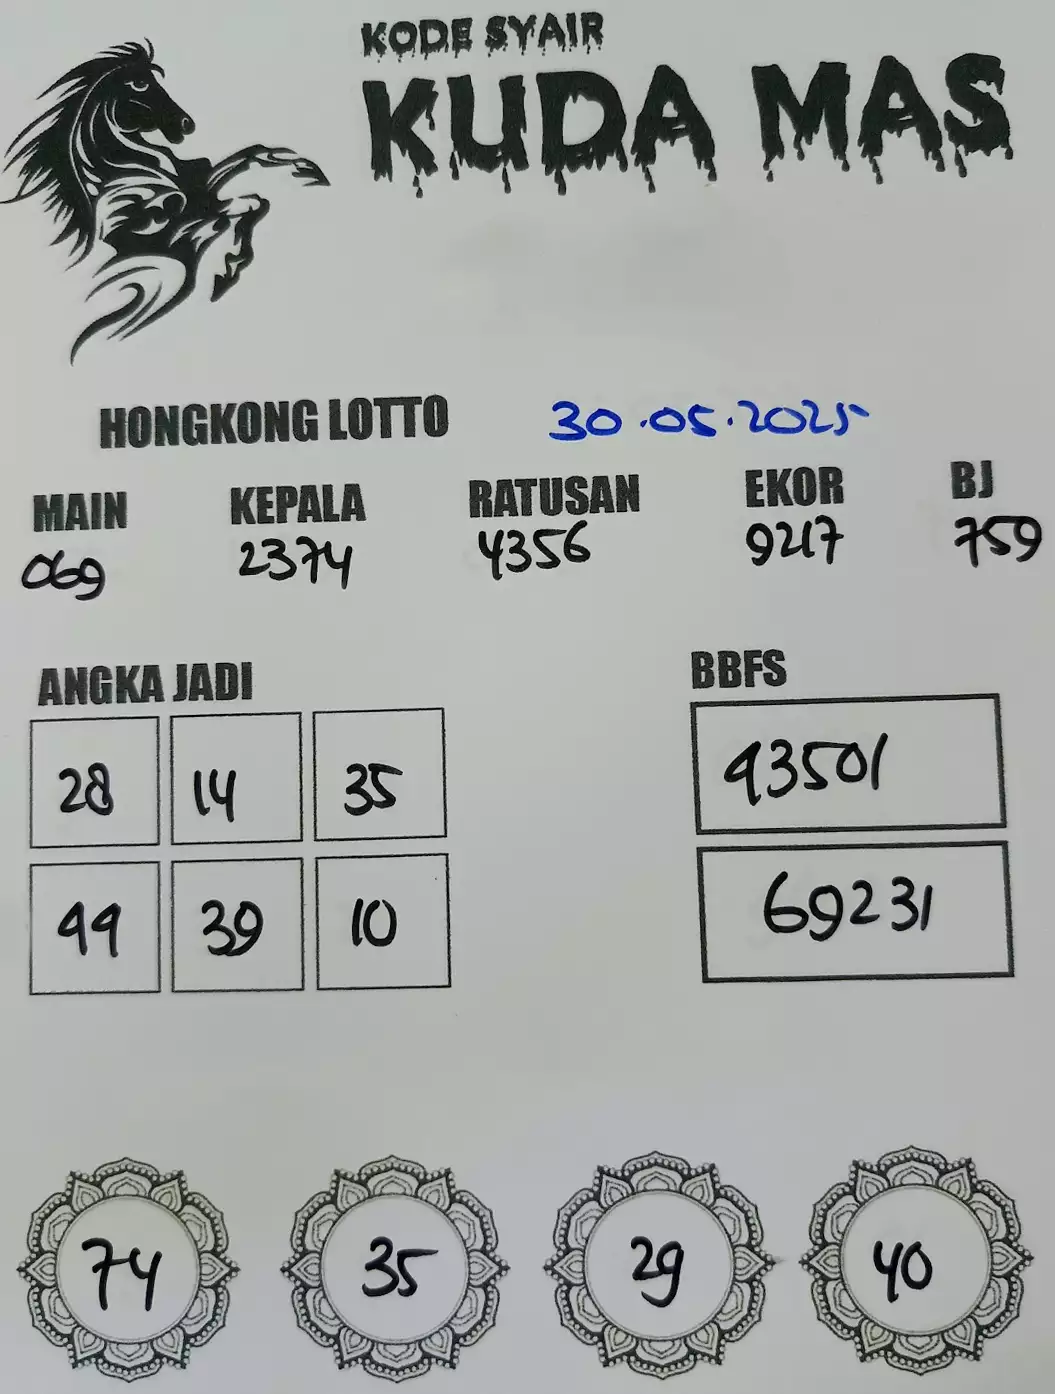 KODE SYAIR
KUDA MAS
HONGKONG LOTTO 30.05.2025
MAIN KEPALA RATUSAN EKOR BJ
069 2374 4356 9217 759
ANGKA JADI BBFS
28 14 35 93501
99 39 10 69231
74 35 29 40